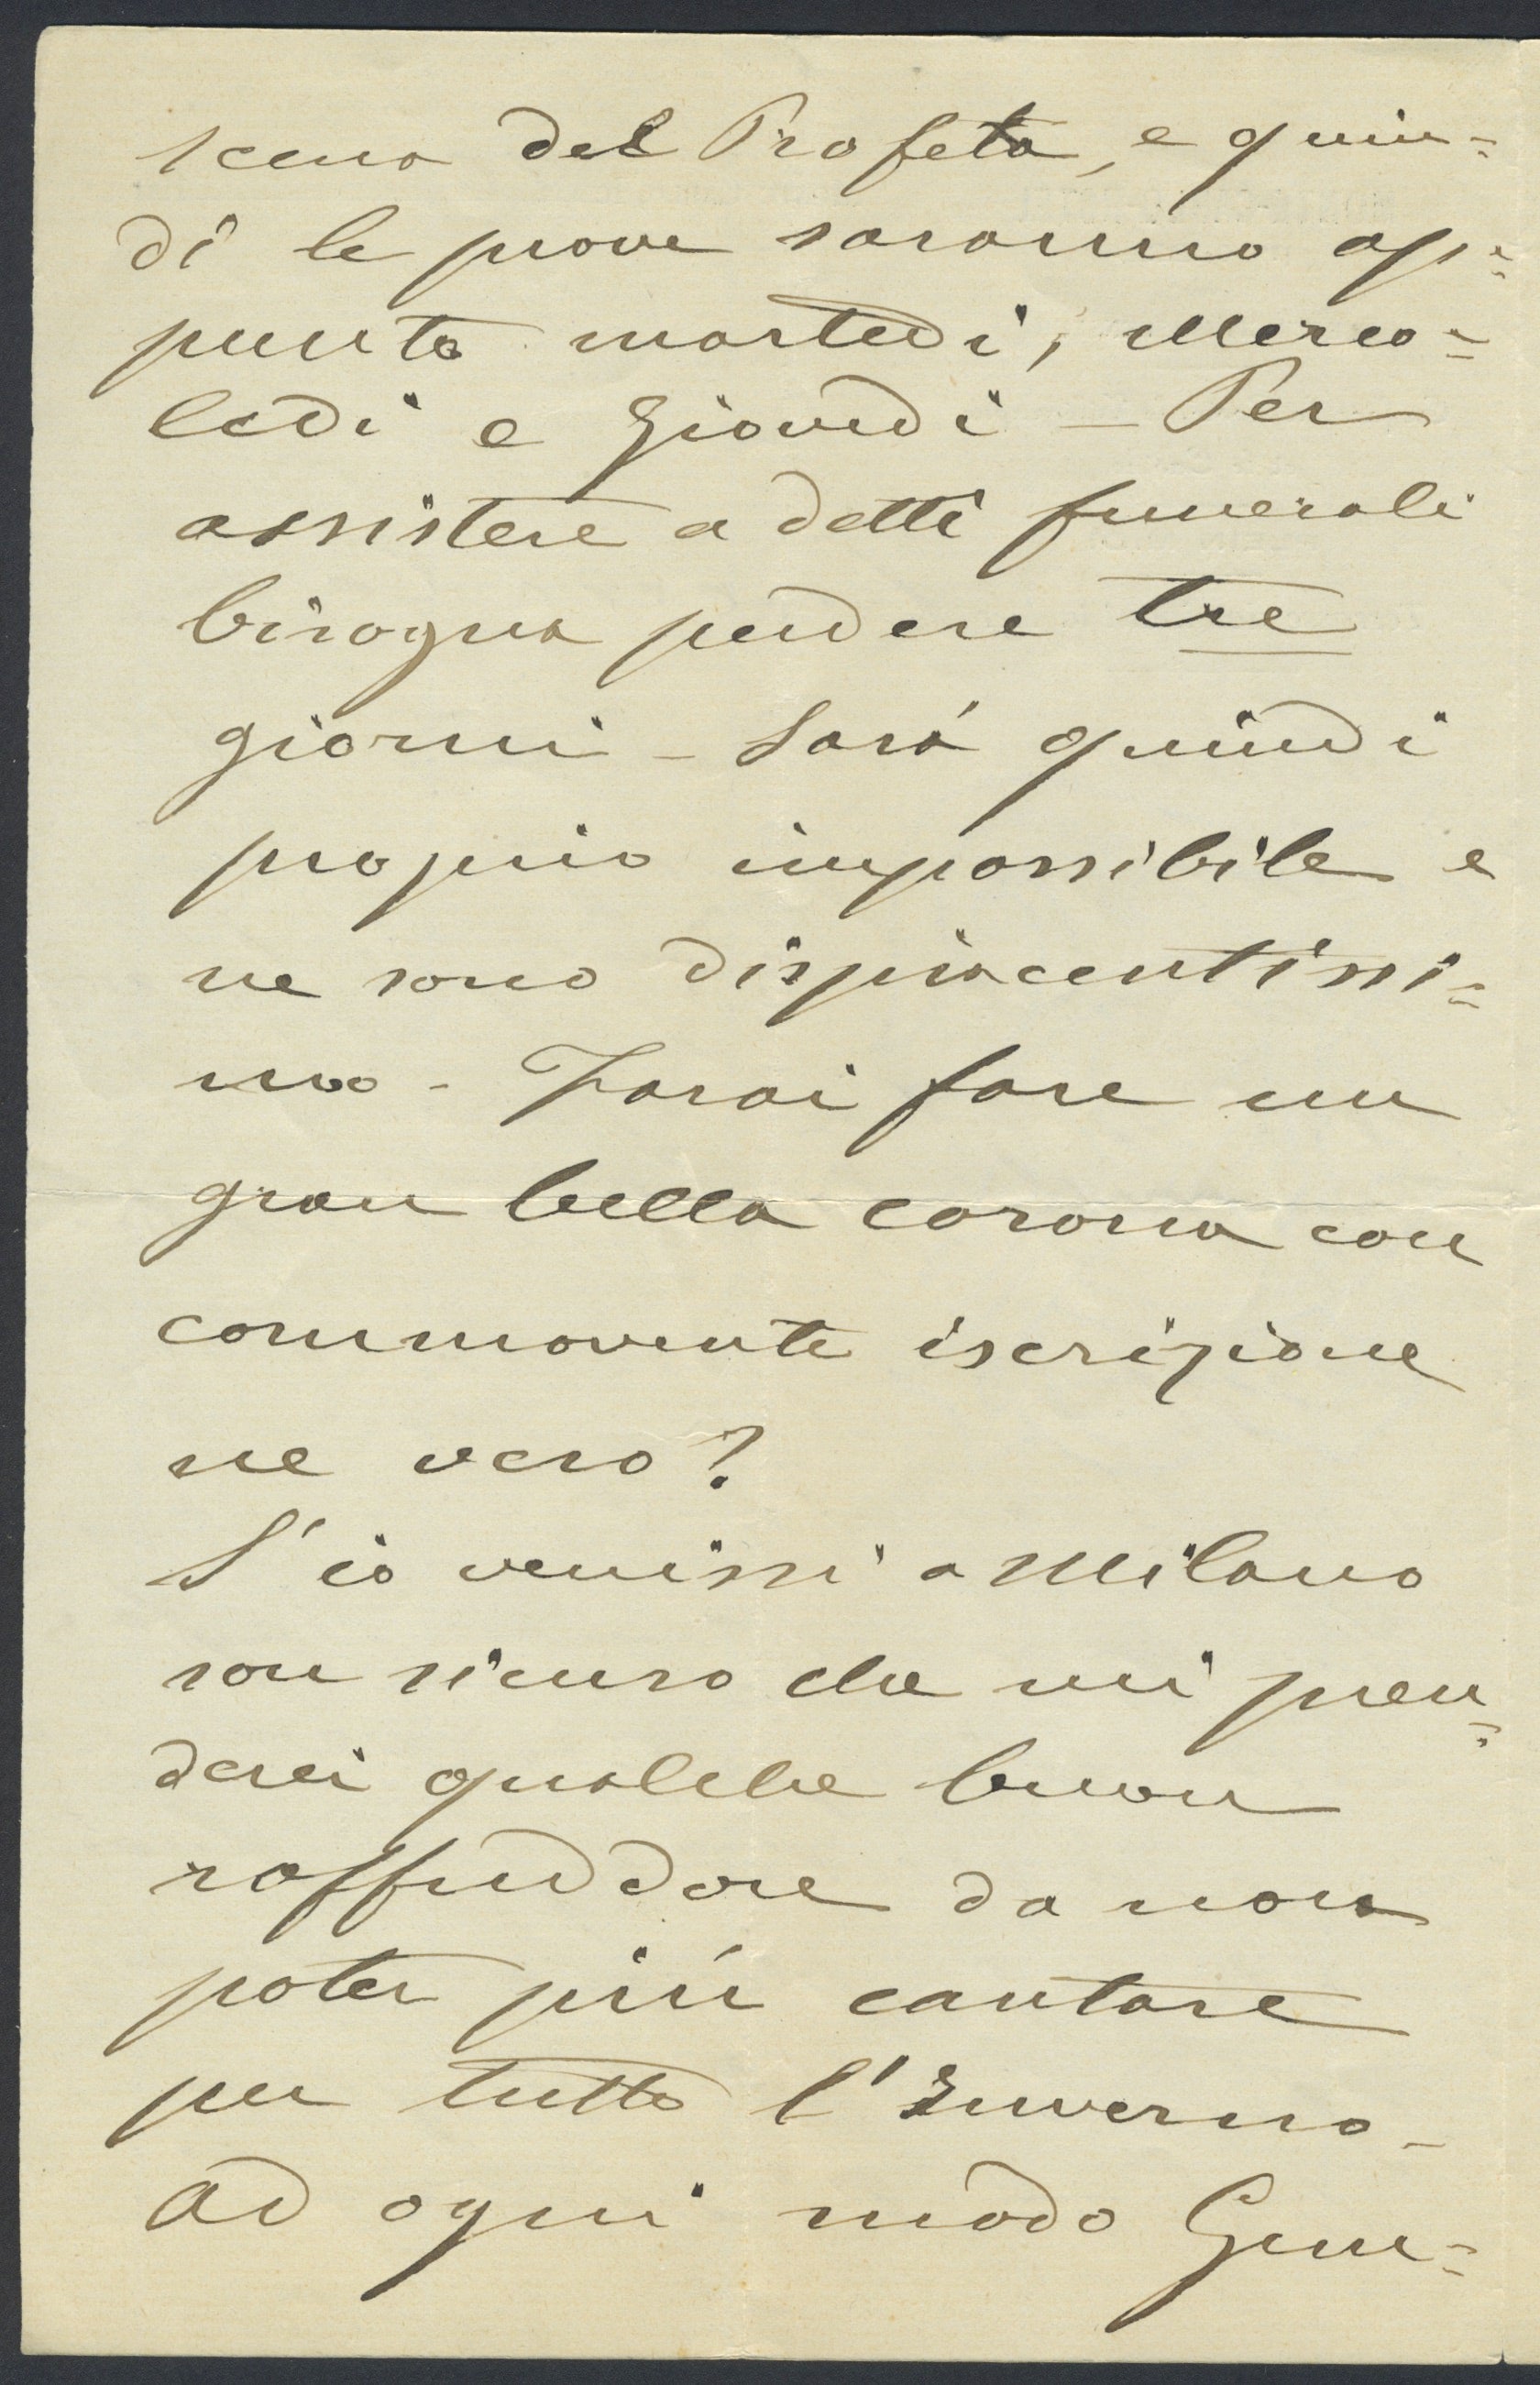 scena del Profeta, e quin=
di le prove saranno ap=
punto martedi, Merco=
ledi e Giovedi – Per
assistere a detti funerali
bisogna perdere tre
giorni – Sará quindi
proprio impossibile e
ne sono dispiacentissi=
mo – Farai fare un
gran bella corona con
commovente iscrizione
ne vero?
S'io venissi a Milano
son sicuro che mi pren=
derei qualche buon
raffreddore da non
poter piú cantare
per tutto l'Inverno –
Ad ogni modo Giu=